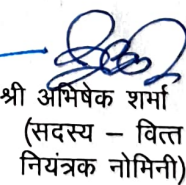 श्री अभिषेक शर्मा
(सदस्य – वित्त
नियंत्रक नोमिनी)